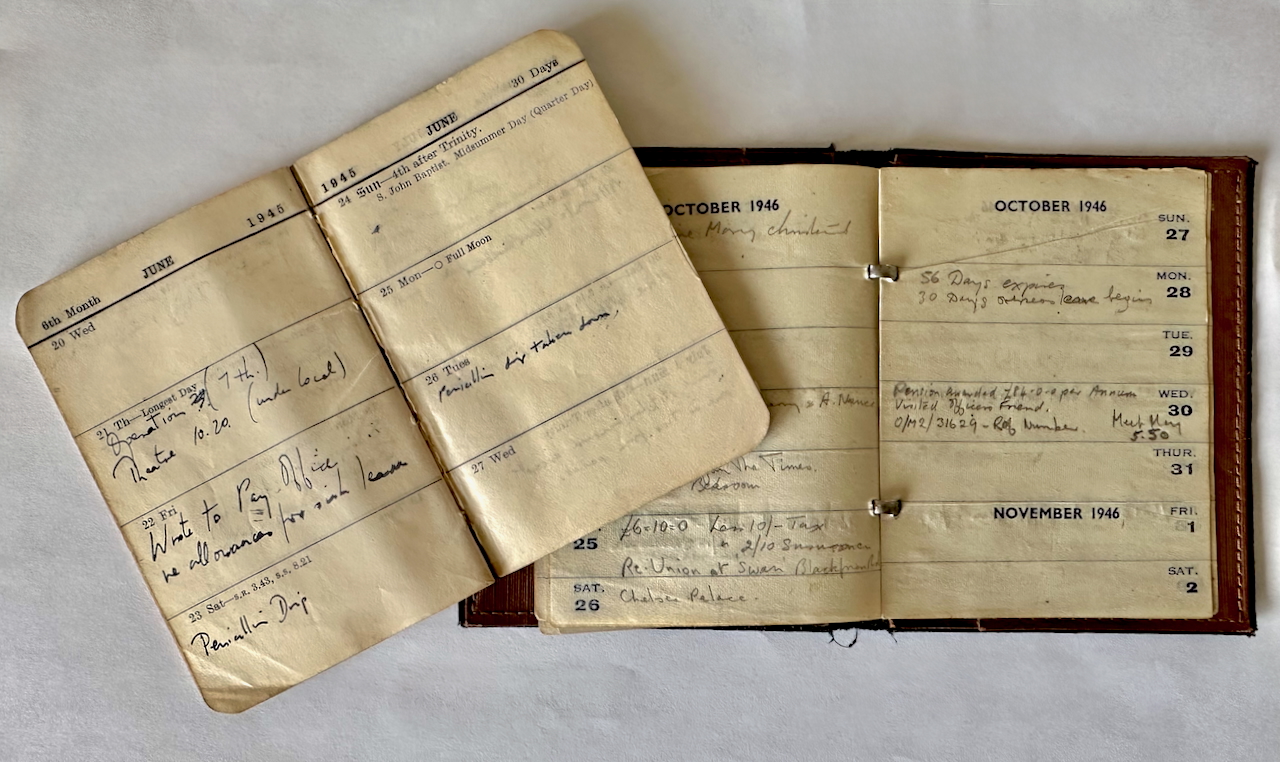 6th Month JUNE 1945
20 Wed
21 Th—Longest Day
Operation (7th.)
Theatre 10.20. (under local)
22 Fri
Wrote to Pay Office
re allowances for sick leave
23 Sat—s.r. 3.43, s.s. 8.21
Penicillin Drip
1945 JUNE 30 Days
24 Sun—4th after Trinity.
S. John Baptist. Midsummer Day (Quarter Day)
25 Mon—○ Full Moon
26 Tues
Penicillin drip taken down.
27 Wed
OCTOBER 1946
Mary christened
& A. Nance
The Times.
Bedroom
25
£6=10=0 Less 10/- Tax
& 2/10 Insurance
Re-Union at Swan Blackfriars
SAT.
26
Chelsea Palace.
OCTOBER 1946
SUN.
27
MON.
28
56 Days expires
30 Days overseas leave begins
TUE.
29
WED.
30
Pension Awarded £86-0-0 per Annum
United Officers Friend.
O/M2/31629 - Ref Number. Meet Mary
5.50
THUR.
31
NOVEMBER 1946
FRI.
1
SAT.
2